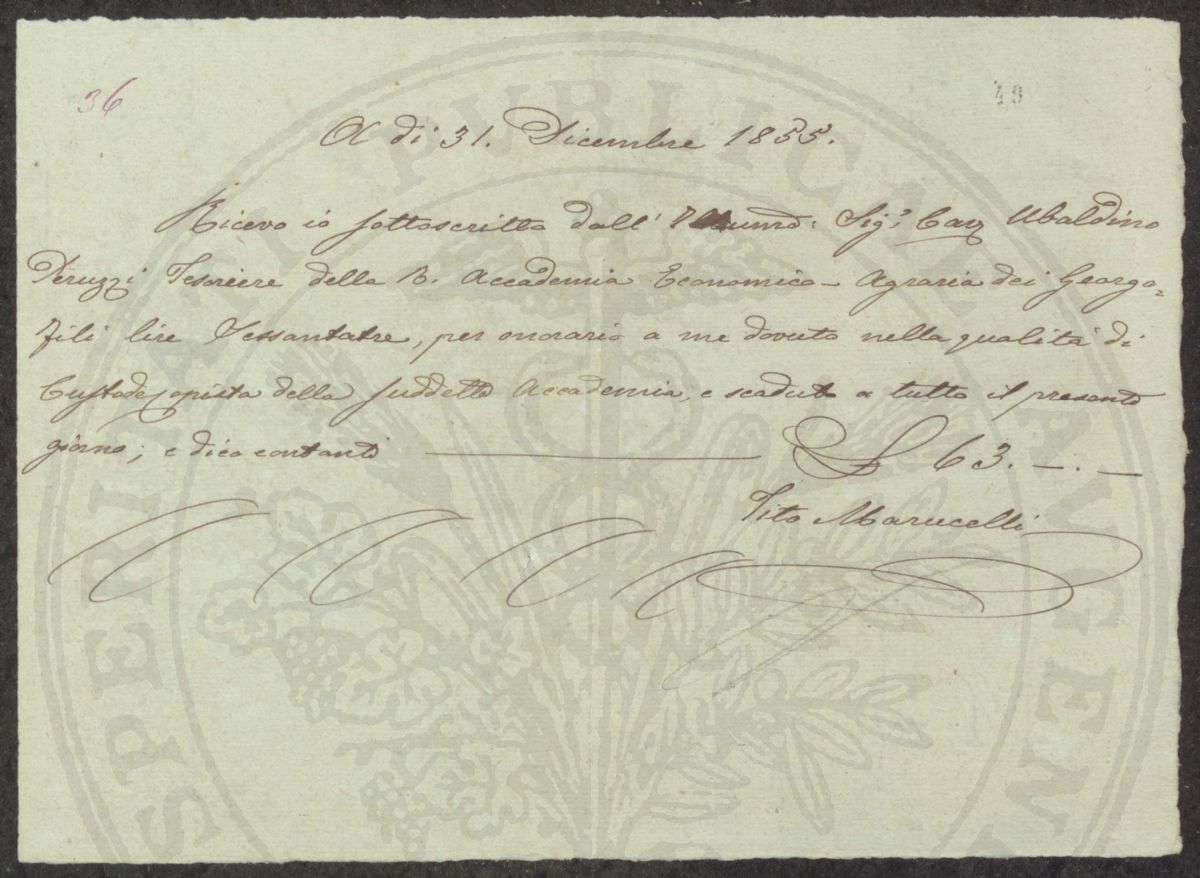 36
49
A dì 31. Dicembre 1855.
Ricevo io sottoscritto dall' Sig.e Cav Ubaldino
Peruzzi Tesoriere della R. Accademia Economico-Agraria dei Georgo=
fili lire Sessantatre, per onorario a me dovuto nella qualità di
Custode copista della suddetta Accademia, e scaduto a tutto il presente
giorno; e dico contanti £ 63. -. -
Tito Marucelli
PROSPERITATI PUBLICAE AUGEN